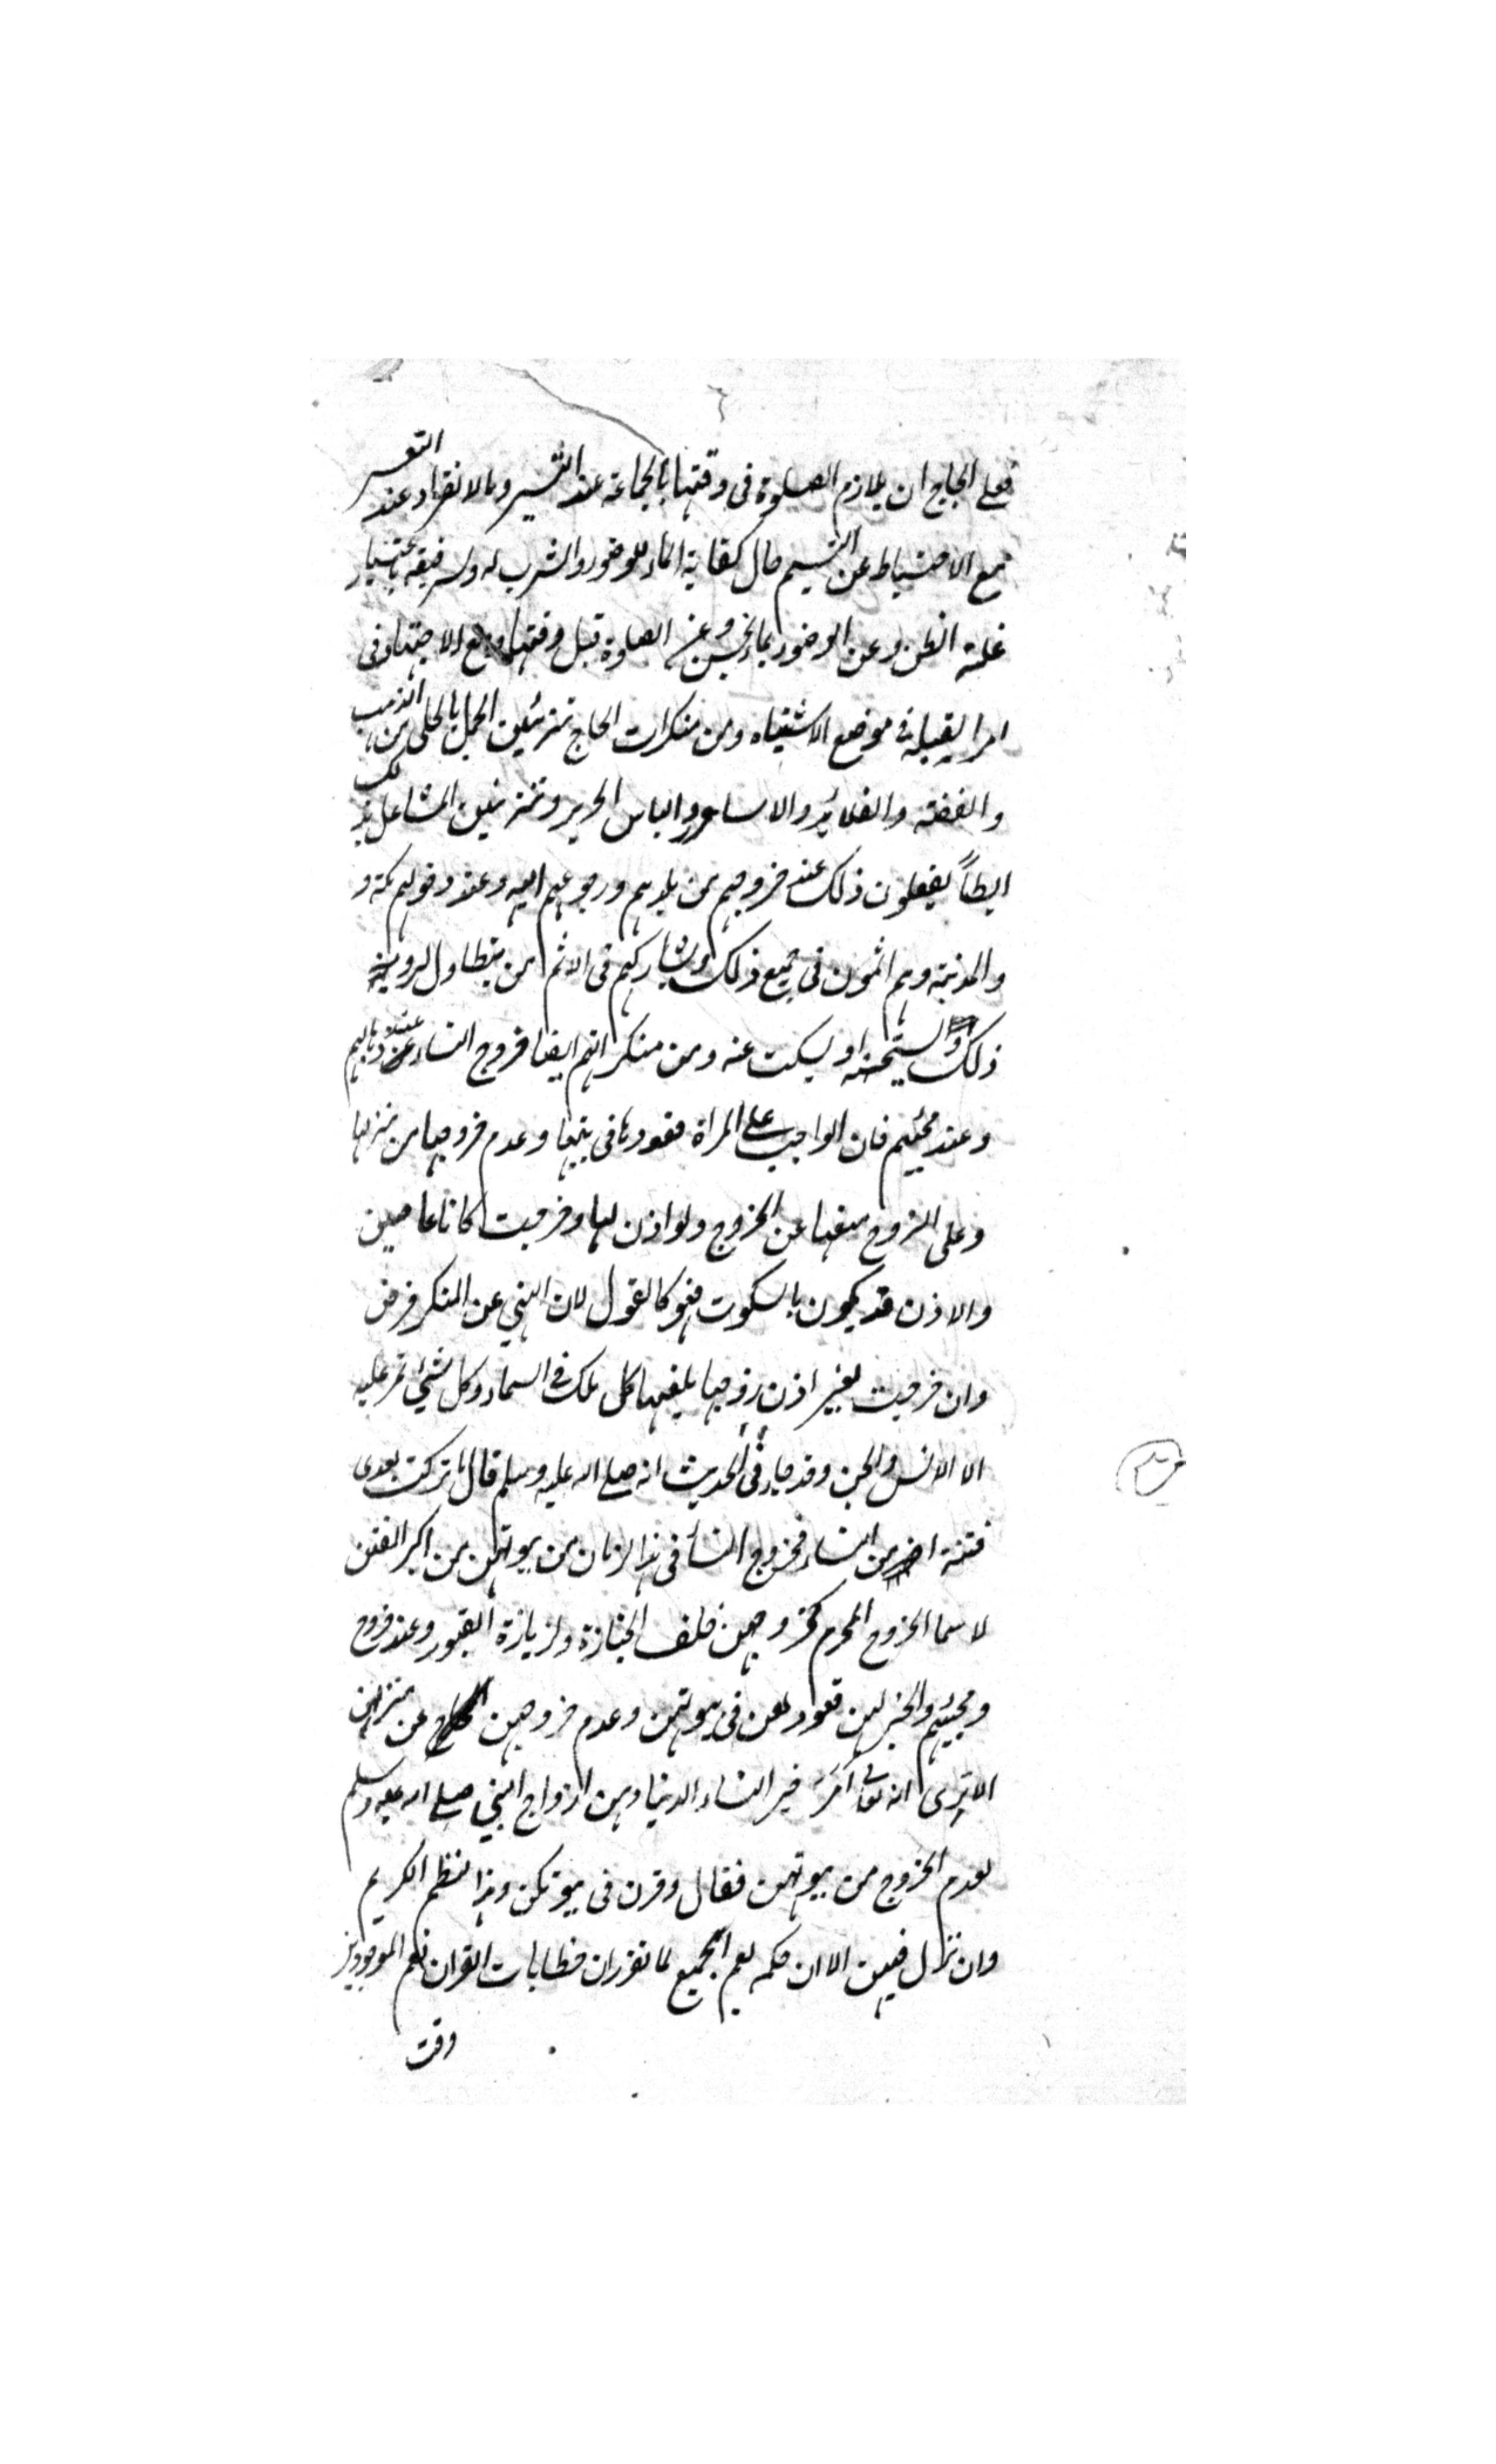 فعلى الحاج ان يلازم الصلوة فى وقتها بالجماعة عند التيسير وبالانفراد عند التعسر
مع الاحتياط عن التيمم حال كفاية الماء للوضوء والشرب له ولرفيقه باعتبار
غلبة الظن وعن الوضوء بماء نجس وعن الصلوة قبل وقتها ومع الاجتهاد فى
امر القبلة فى موضع الاشتباه ومن منكرات الحاج تزيين الجمل بالحلى من الذهب
والفضة والقلائد والاساور والباس الحرير وتزيين المشاعل بذلك
ايضاً يفعلون ذلك عند خروجهم من بلدهم ورجوعهم اليه وعند دخولهم مكة و
والمدينة وهم اثمون فى جميع ذلك ويشاركهم فى الاثم من يتطاول لروية
ذلك ويستحسنه او يسكت عنه ومن منكراتهم ايضا خروج النساء عند ذهابهم
وعند مجيئهم فان الواجب على المراة قعودها فى بيتها وعدم خروجها من منزلها
وعلى الزوج منعها عن الخروج ولو اذن لها وخرجت كانا عاصيين
والاذن قد يكون بالسكوت فهو كالقول لان النهي عن المنكر فرض
وان خرجت بغير اذن زوجها يلعنها كل ملك فى السماء وكل شيئ تمر عليه
الا الانس والجن وقد جاء فى الحديث انه صلى الله عليه وسلم قال ما تركت بعدى
فتنة اضر من النساء فخروج النسأ فى هذا الزمان من بيوتهن من اكبر الفتن
لا سما الخروج المحرم كخروجهن خلف الجنازة ولزيارة القبور وعند خروج
ومجيئهم والخير لهن قعودهن فى بيوتهن وعدم خروجهن عن منزلهن
الا ترى انه تعالى امر خير النساء الدنيا وهن ازواج النبي صلى الله عليه وسلم
بعدم الخروج من بيوتهن فقال وقرن فى بيوتكن وهذا النظم الكريم
وان نزل فيهن الا ان حكمه يعم الجميع لما تقرر ان خطابات القران تعم الموجودين
وقت